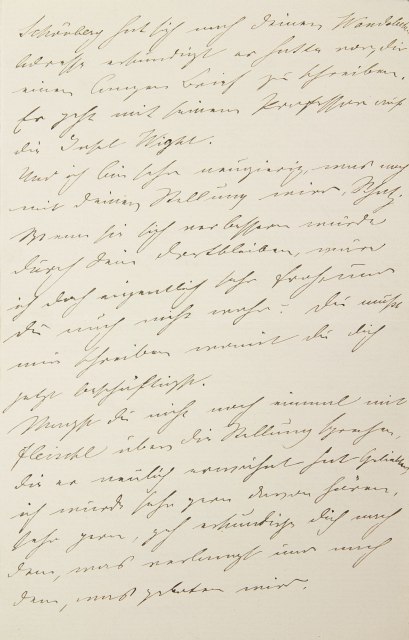 Schönberg hat sich nach deiner Wandsbeker
Adresse erkundigt er hatte vor dir
einen langen Brief zu schreiben.
Er geht mit seinem Professor auf
die Insel Wight.
Und ich bin sehr neugierig was noch
mit deiner Stellung wird, Schatz.
Wenn sie sich verbessern würde
durch dein Dortbleiben, wäre
ich doch eigentlich sehr froh und
du auch nicht wahr? Du mußt
mir schreiben womit du dich
jetzt beschäftigst.
Magst du nicht noch einmal mit
Fleischl über die Stellung sprechen,
die er neulich erwähnt hat Geliebter
ich würde sehr gern davon hören,
sehr gern, geh erkundige dich nach
dem, was verlangt und nach
dem, was geboten wird.